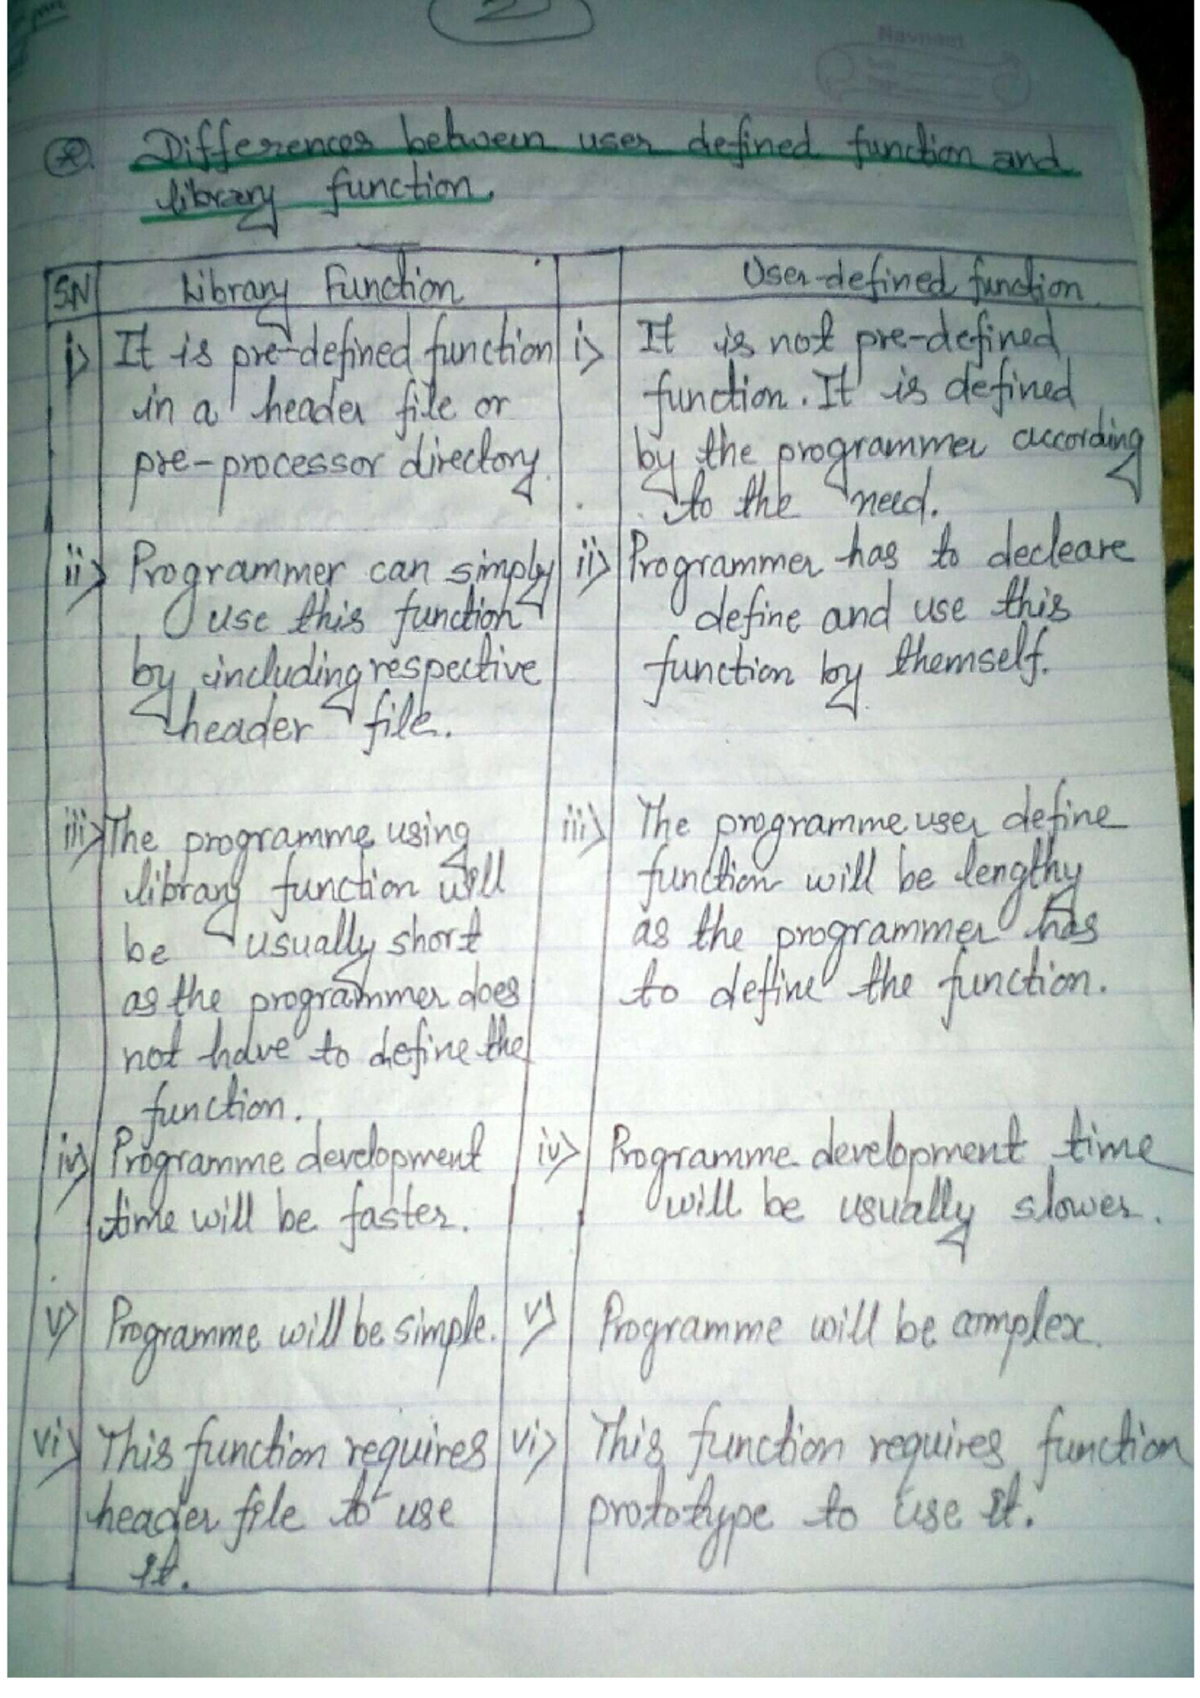 2
Navneet
Differences between user defined function and
library function.
SN
Library Function
User-defined function
i>
It is pre-defined function
in a header file or
pre-processor directory.
i>
It is not pre-defined
function. It is defined
by the programmer according
to the need.
ii>
Programmer can simply
use this function
by including respective
header file.
ii>
Programmer has to decleare
define and use this
function by themself.
iii>
The programme using
library function will
be usually short
as the programmer does
not have to define the
function.
iii>
The programme user define
function will be lengthy
as the programmer has
to define the function.
iv>
Programme development
time will be faster.
iv>
Programme development time
will be usually slower.
v>
Programme will be simple.
v>
Programme will be complex.
vi>
This function requires
header file to use
it.
vi>
This function requires function
prototype to use it.